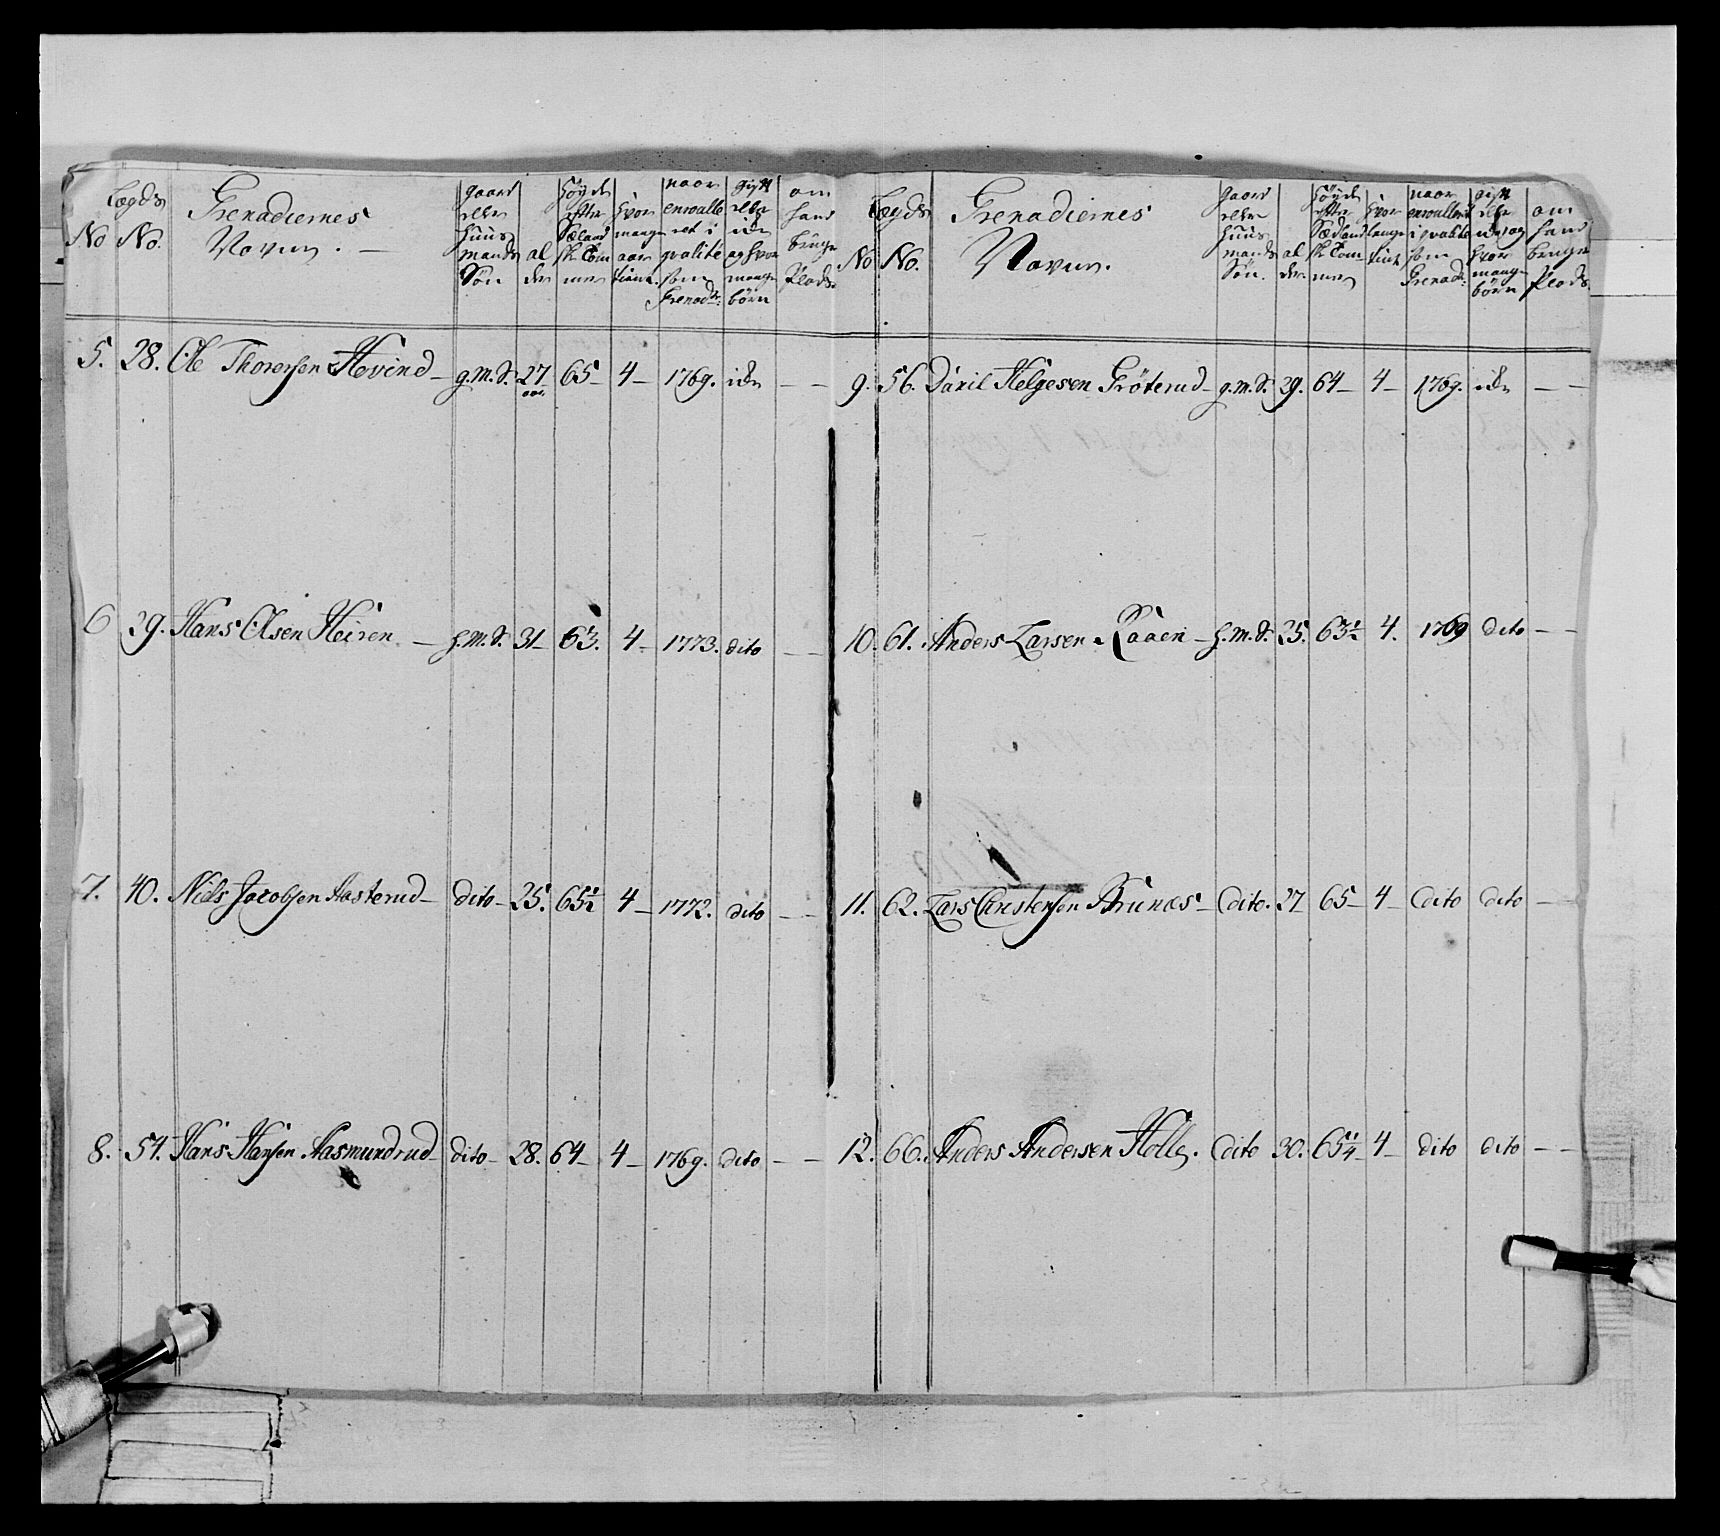 Lægds
No No.
Grenadiernes
Navne. —
gaard
eller
huus
mands
Søn
al
der
höyde
efter
Sæland
sk Tom
mer
hvor
mange
aar
tient.
naar
enroulle
ret i
qvalité
som
Grenadr:
gift
eller
ide
og hvor
mange
börn
om
hand
bruger
Plads.
5. 28. Ole Thoresen Hovind – g.M.S. 27 aar. 65 – 4 – 1769. ide — —
6 39. Hans Olsen Heiren – h.M.S. 31 – 63. 4 – 1773. dito — —
7. 40. Niels Jacobsen Aasterud – dito – 25. 65½ 4 – 1772. dito — —
8. 54. Hans Hansen Aasmundrud dito – 28. 64 – 4 – 1769. dito — —
Lægds
No No.
Grenadiernes
Navne.
gaard
eller
huus
mands
Søn.
al
der.
höyde
efter
Sæeland
sk Tom
mer
hvor
længe
tient
naar
enroullert
i qvalité
som
Grenadr:
gift
eller
ide og
hvor
mange
börn
om
hand
bruger
Plads.
9. 56. David Helgesen Gröterud – g.M.S. 29. 64 – 4 – 1769. ide — —
10. 61. Anders Larsen Raaen – h.M.S. 25. 63½ 4. 1769 dito — —
11. 62. Lars Christensen Brunæs – dito. 27 65 – 4 – dito dito — —
12. 66. Anders Andersen Holle. dito 30. 65¼ 4 – dito dito — —